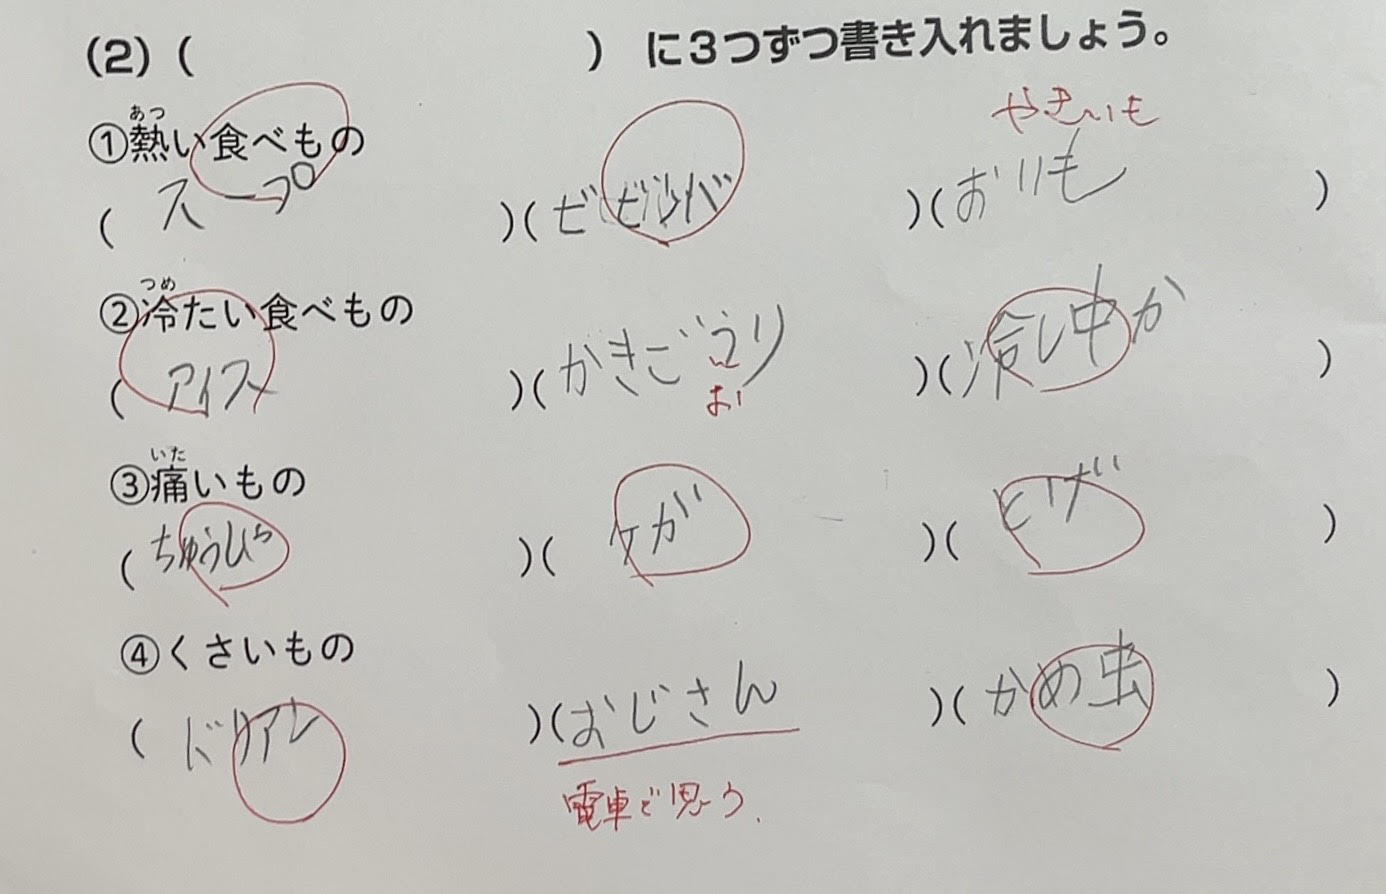 (2) (　　　　) に3つずつ書き入れましょう。
あつ
①熱い食べもの
やきいも
( スープ )( ビビンバ )( おいも )
つめ
②冷たい食べもの
( アイス )( かきごうり )( 冷し中か )
お
いた
③痛いもの
( ちゅうしゃ )( ケガ )( とげ )
④くさいもの
( ドリアン )( おじさん )( かめ虫 )
電車で思う.